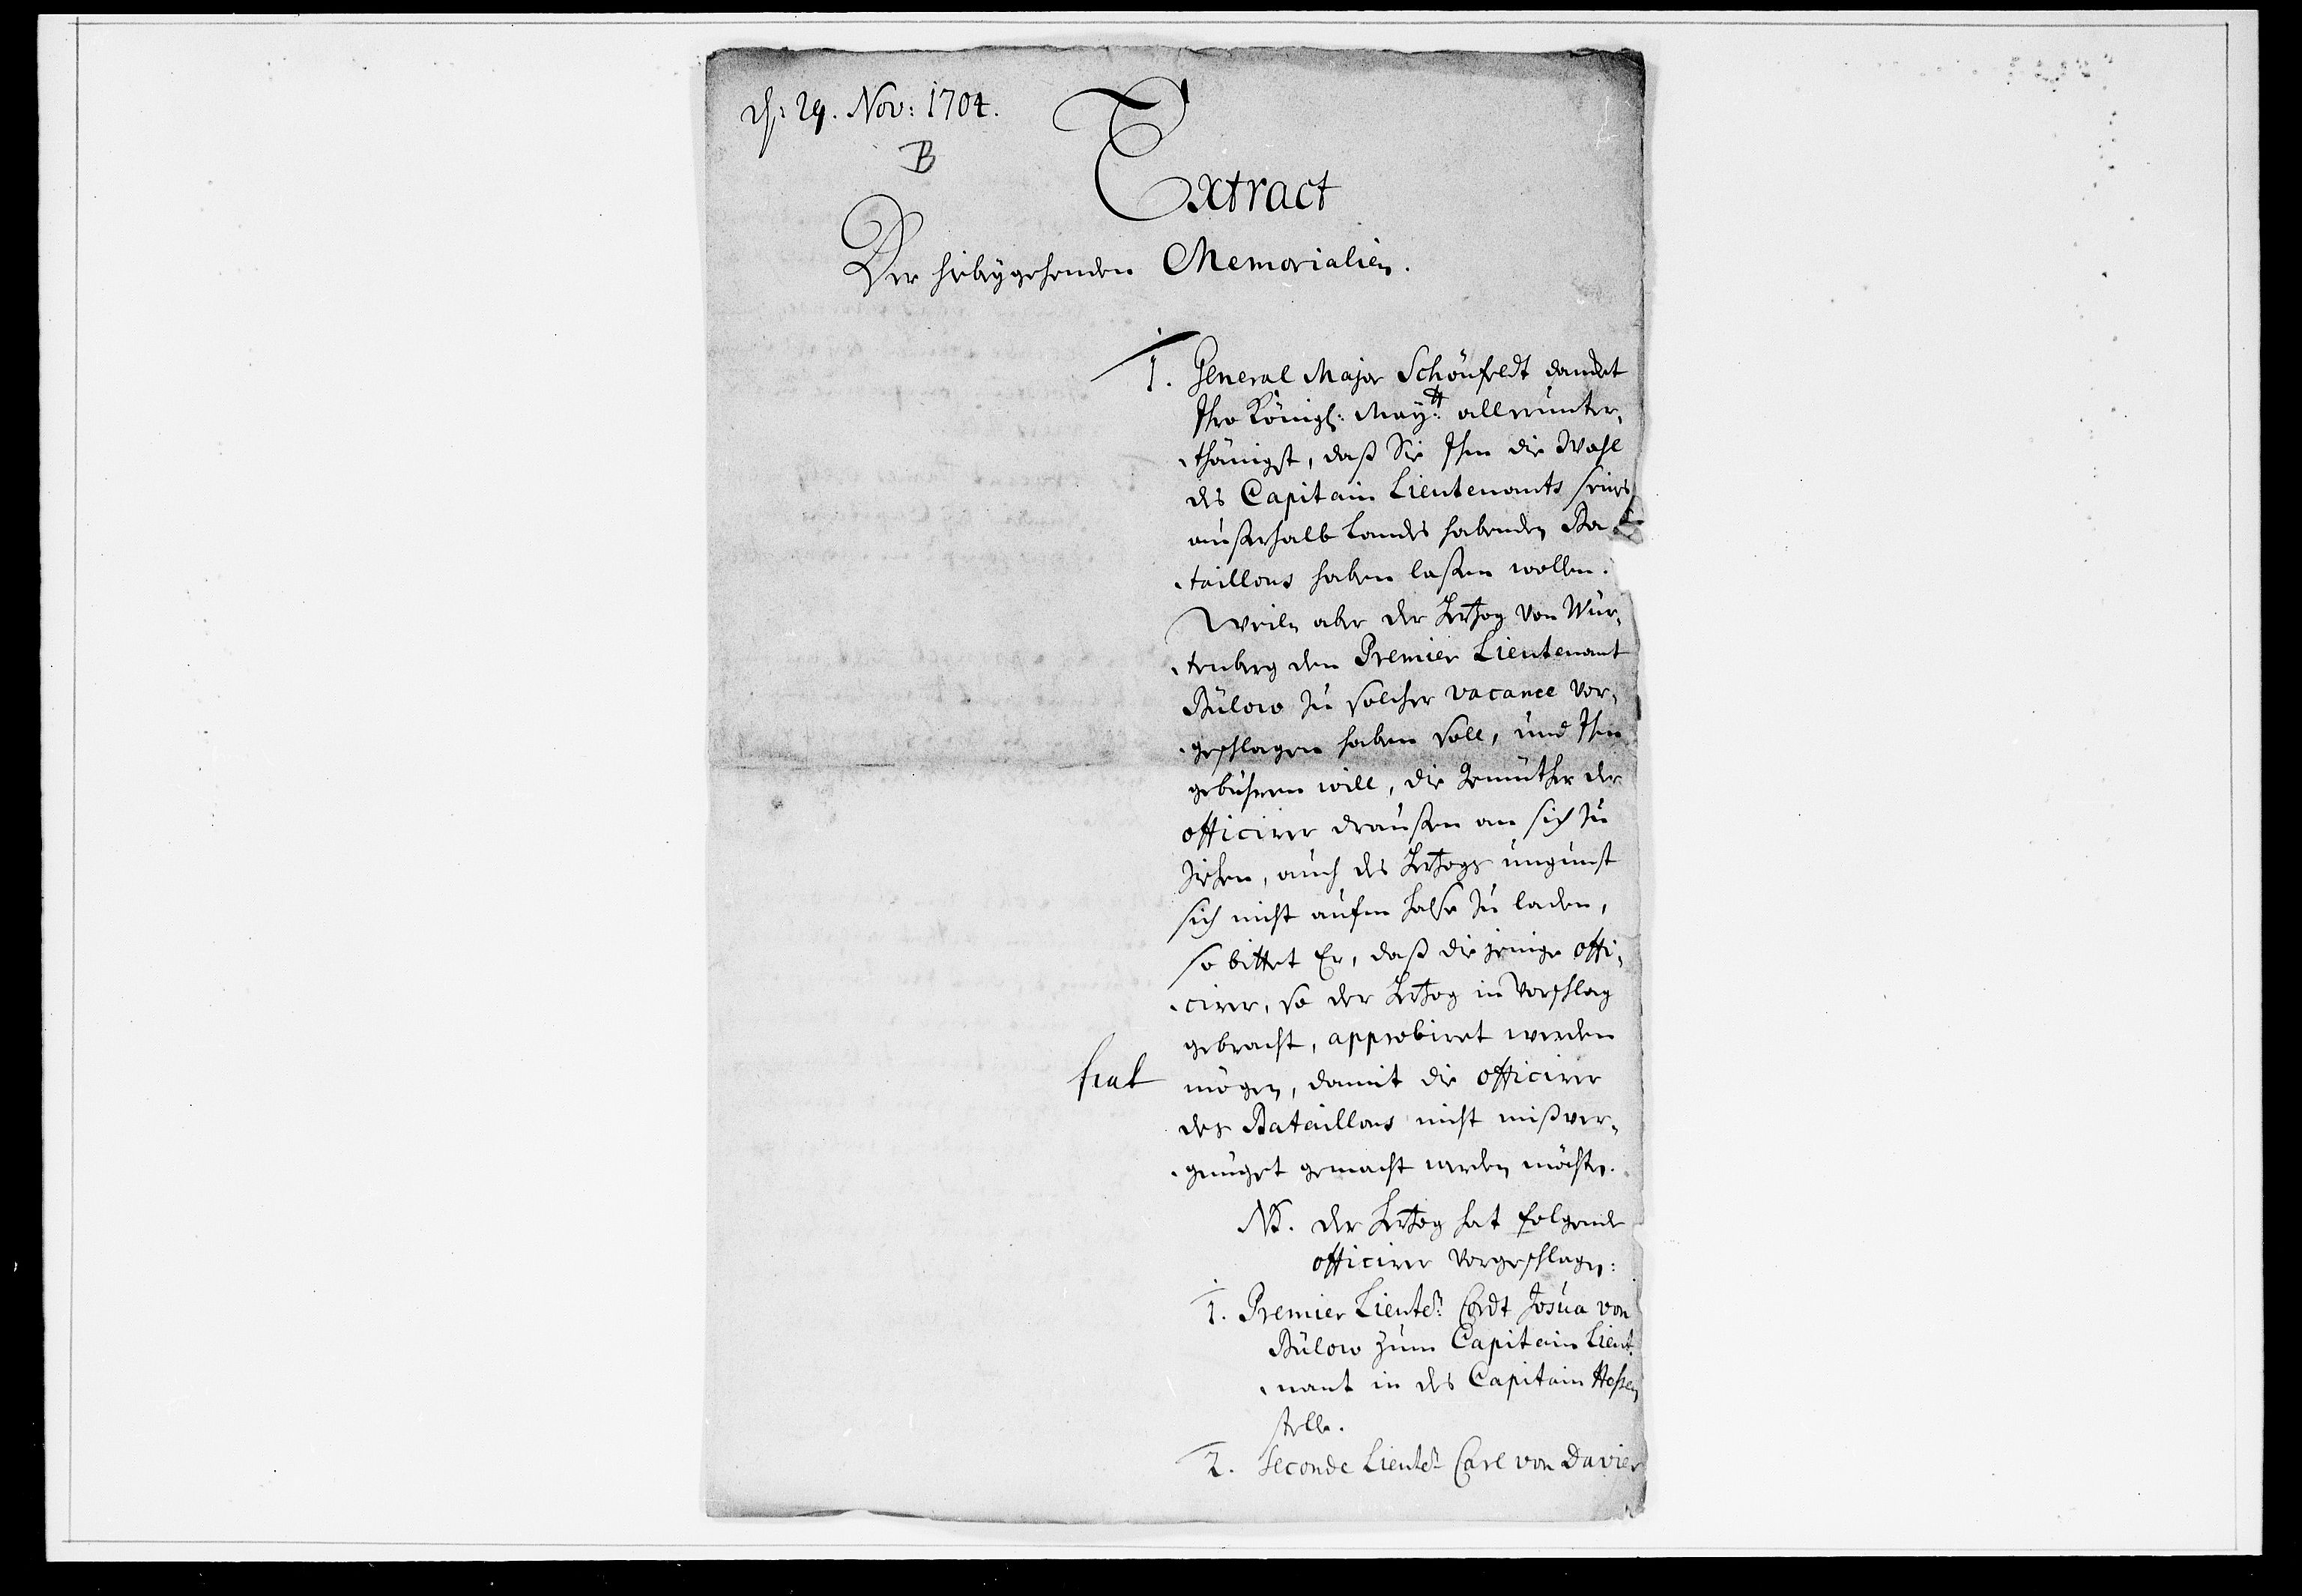 d: 29. Nov: 1704.
B
Extract
Der hiebeygehenden Memorialien.
1. General Major Schönfeldt dancket
Ihro Königl: Mayt: allerunter-
thänigst, daß Sie Ihm die Wahl
des Capitain Lieutenants seines
außerhalb Landes habenden Ba-
taillons haben laßen wollen.
Weiln aber der Hertzog von Wür-
tenberg den Premier Lieutenant
Bülow zu solcher vacance vor-
geschlagen haben soll, und Ihm
gebühren will, die Gemüther der
officirer draußen an sich zu
ziehen, auch des Hertzogs ungunst
sich nicht aufm Halse zu laden,
so bittet Er, daß die jenige offi-
cirer, so der Hertzog in Vorschlag
gebracht, approbiret werden
fiat
mögen, damit die officirer
des Bataillons nicht mißver-
gnüget gemacht werden möchten.
NB. der Hertzog hat folgende
officirer vorgeschlagen:
1. Premier Lieutet: Cordt Josua von
Bülow zum Capitain Lieut-
nant in des Capitain Hessen
stelle.
2. Seconde Lieutet: Carl von Davier